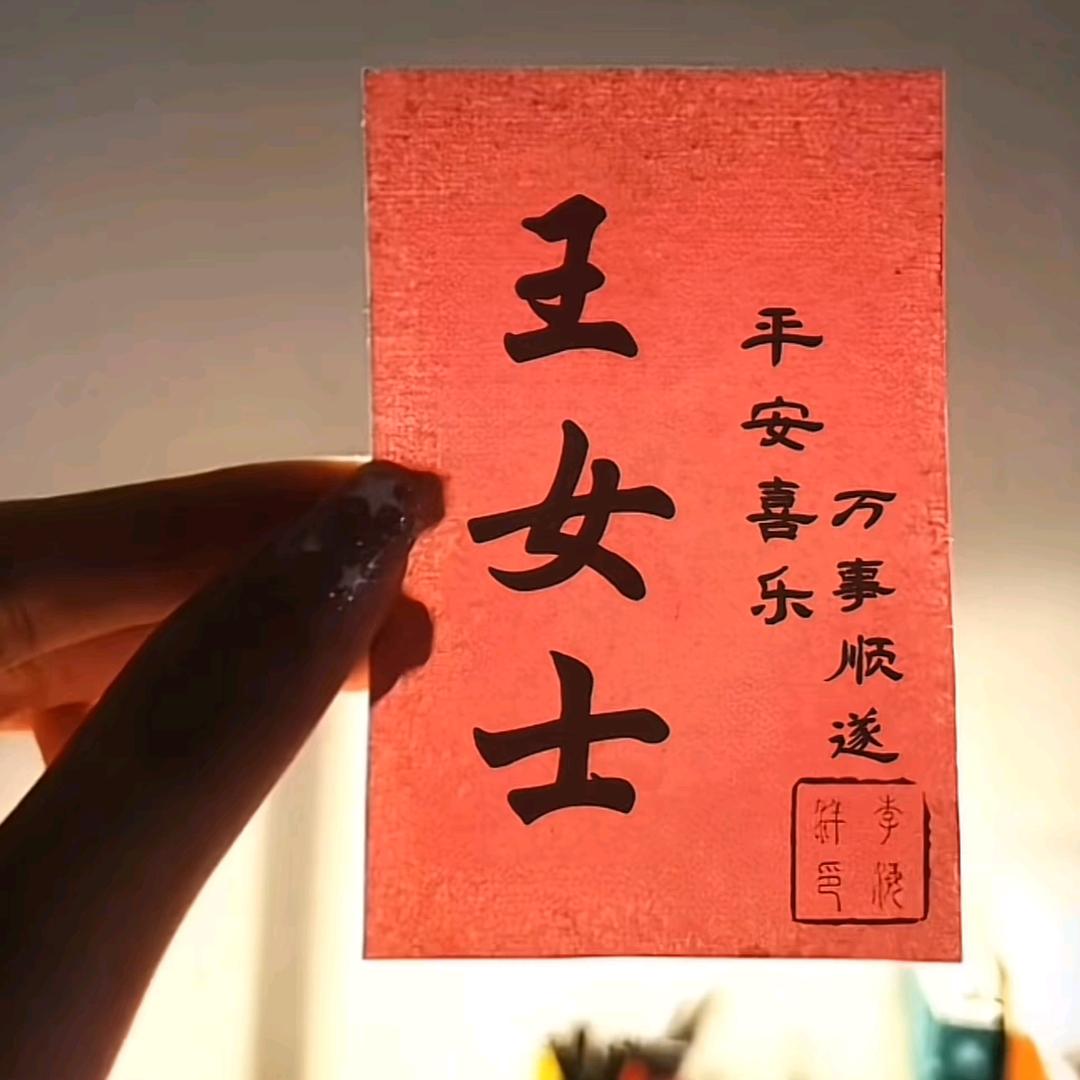 王女士
平安喜乐
万事顺遂